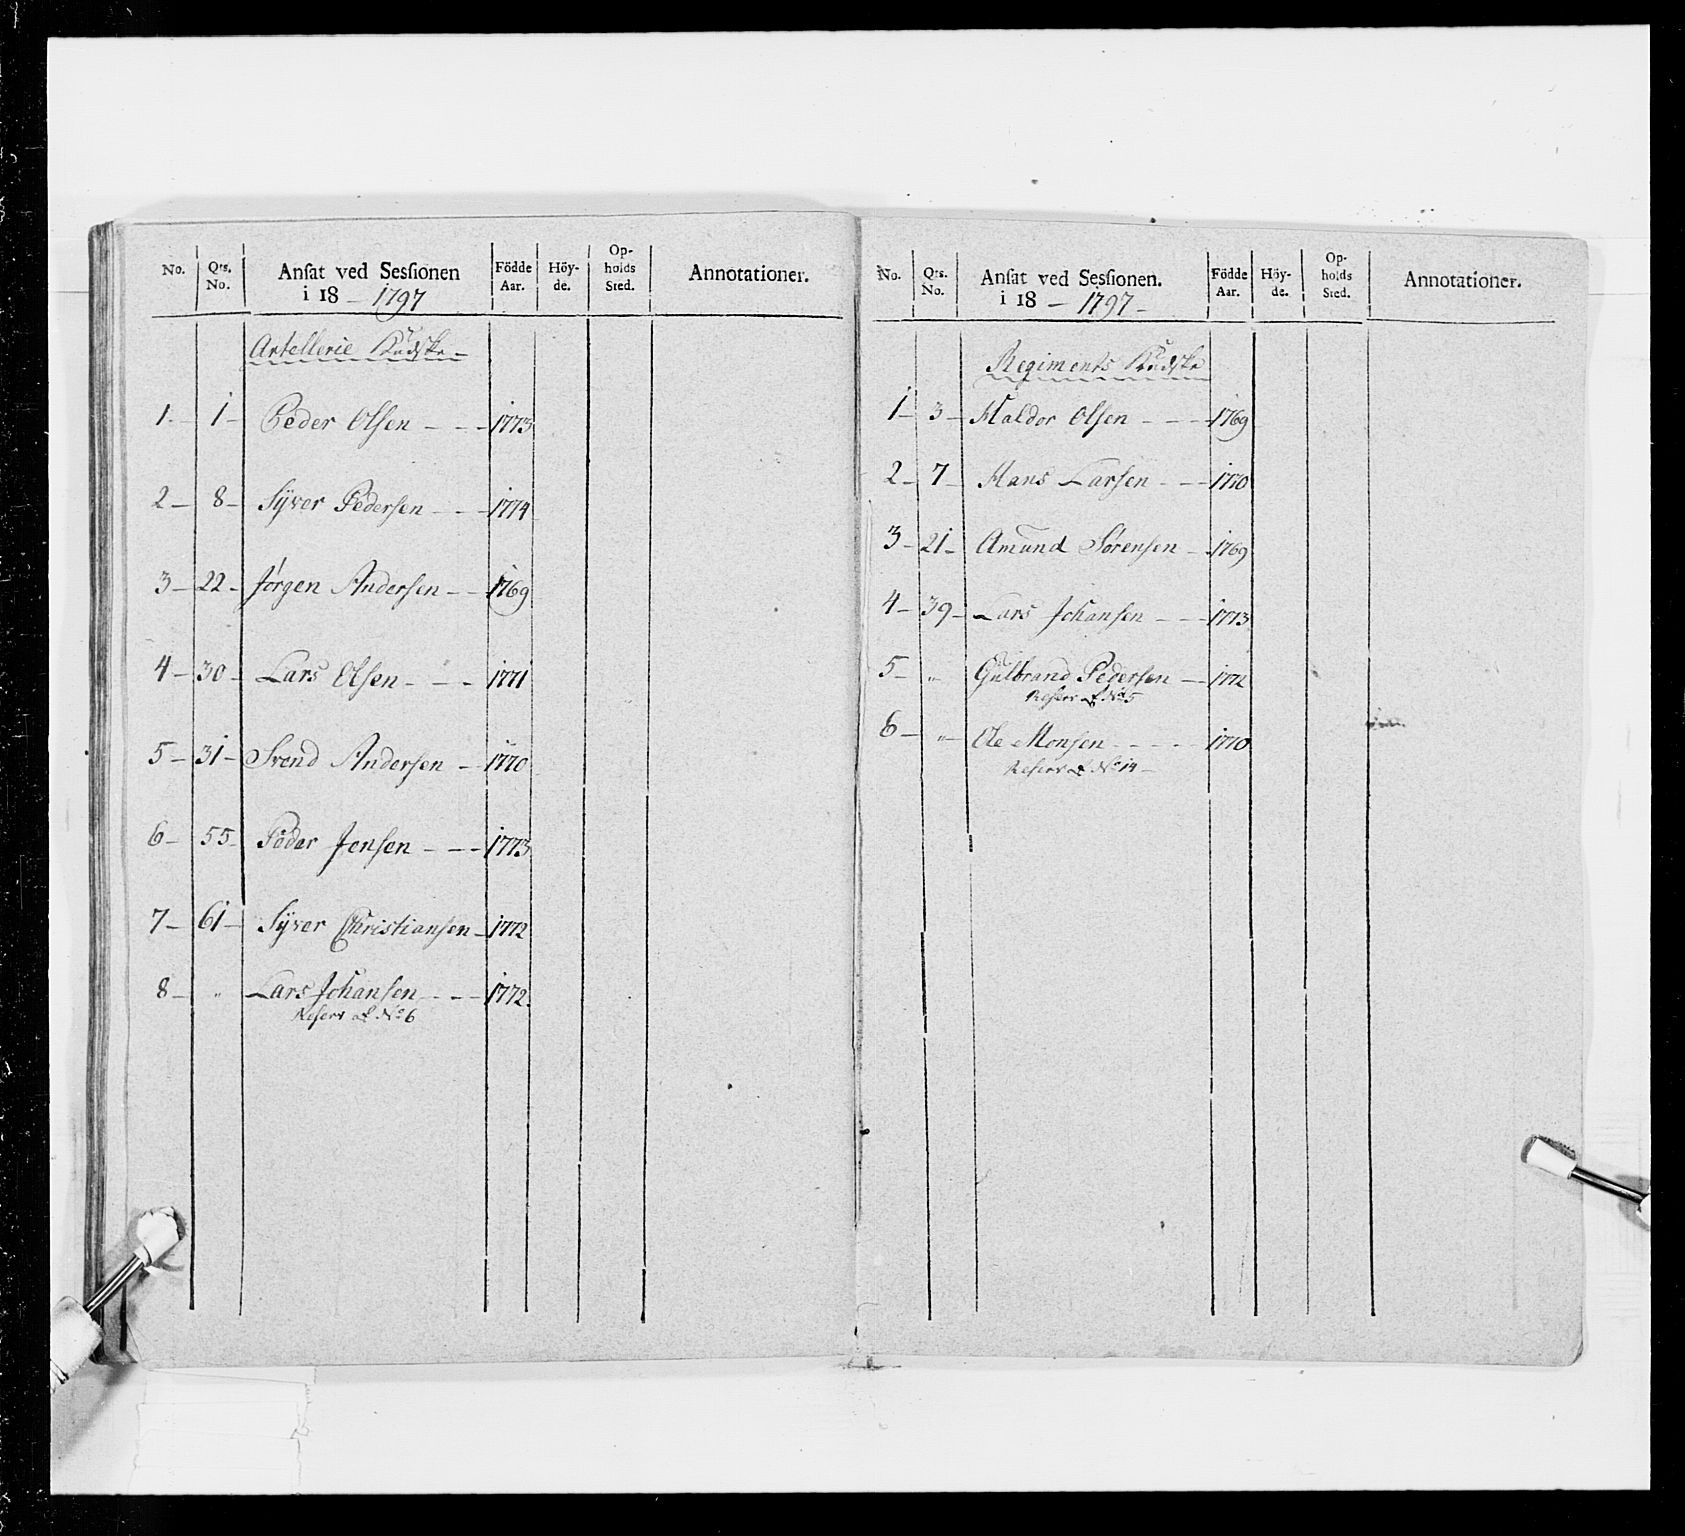 No. Qrs. No. Ansat ved Sessionen i 18 – 1797 Födde Aar. Höyde. Opholds Sted. Annotationer.
Artellerie Kudske –
1. – 1 – Peder Olsen – – – 1773
2 – 8 – Syver Pedersen – – – 1774
3 – 22 – Jørgen Andersen – – 1769
4 – 30 – Lars Olsen – – – 1771
5 – 31 – Svend Andersen – 1770
6 – 55 – Peder Jensen – – – 1773
7 – 61 – Syver Christiansen – 1772
8 – " Lars Johansen – – – 1772.
Reserv af No 6
No. Qrs. No. Ansat ved Sessionen. i 18 – 1797 – Födde Aar. Höyde. Opholds Sted. Annotationer.
Regiments Kudske
1 – 3 – Haldor Olsen – – – 1769
2 – 7 – Hans Larsen – – – 1770
3 – 21 – Amund Sørensen – 1769
4 – 39 – Lars Johansen – – – 1773
5 – " Gulbrand Pedersen – 1772
Reserv af No 5
6 – " – Ole Monsen – – – – 1770
Reserv af No 14 –